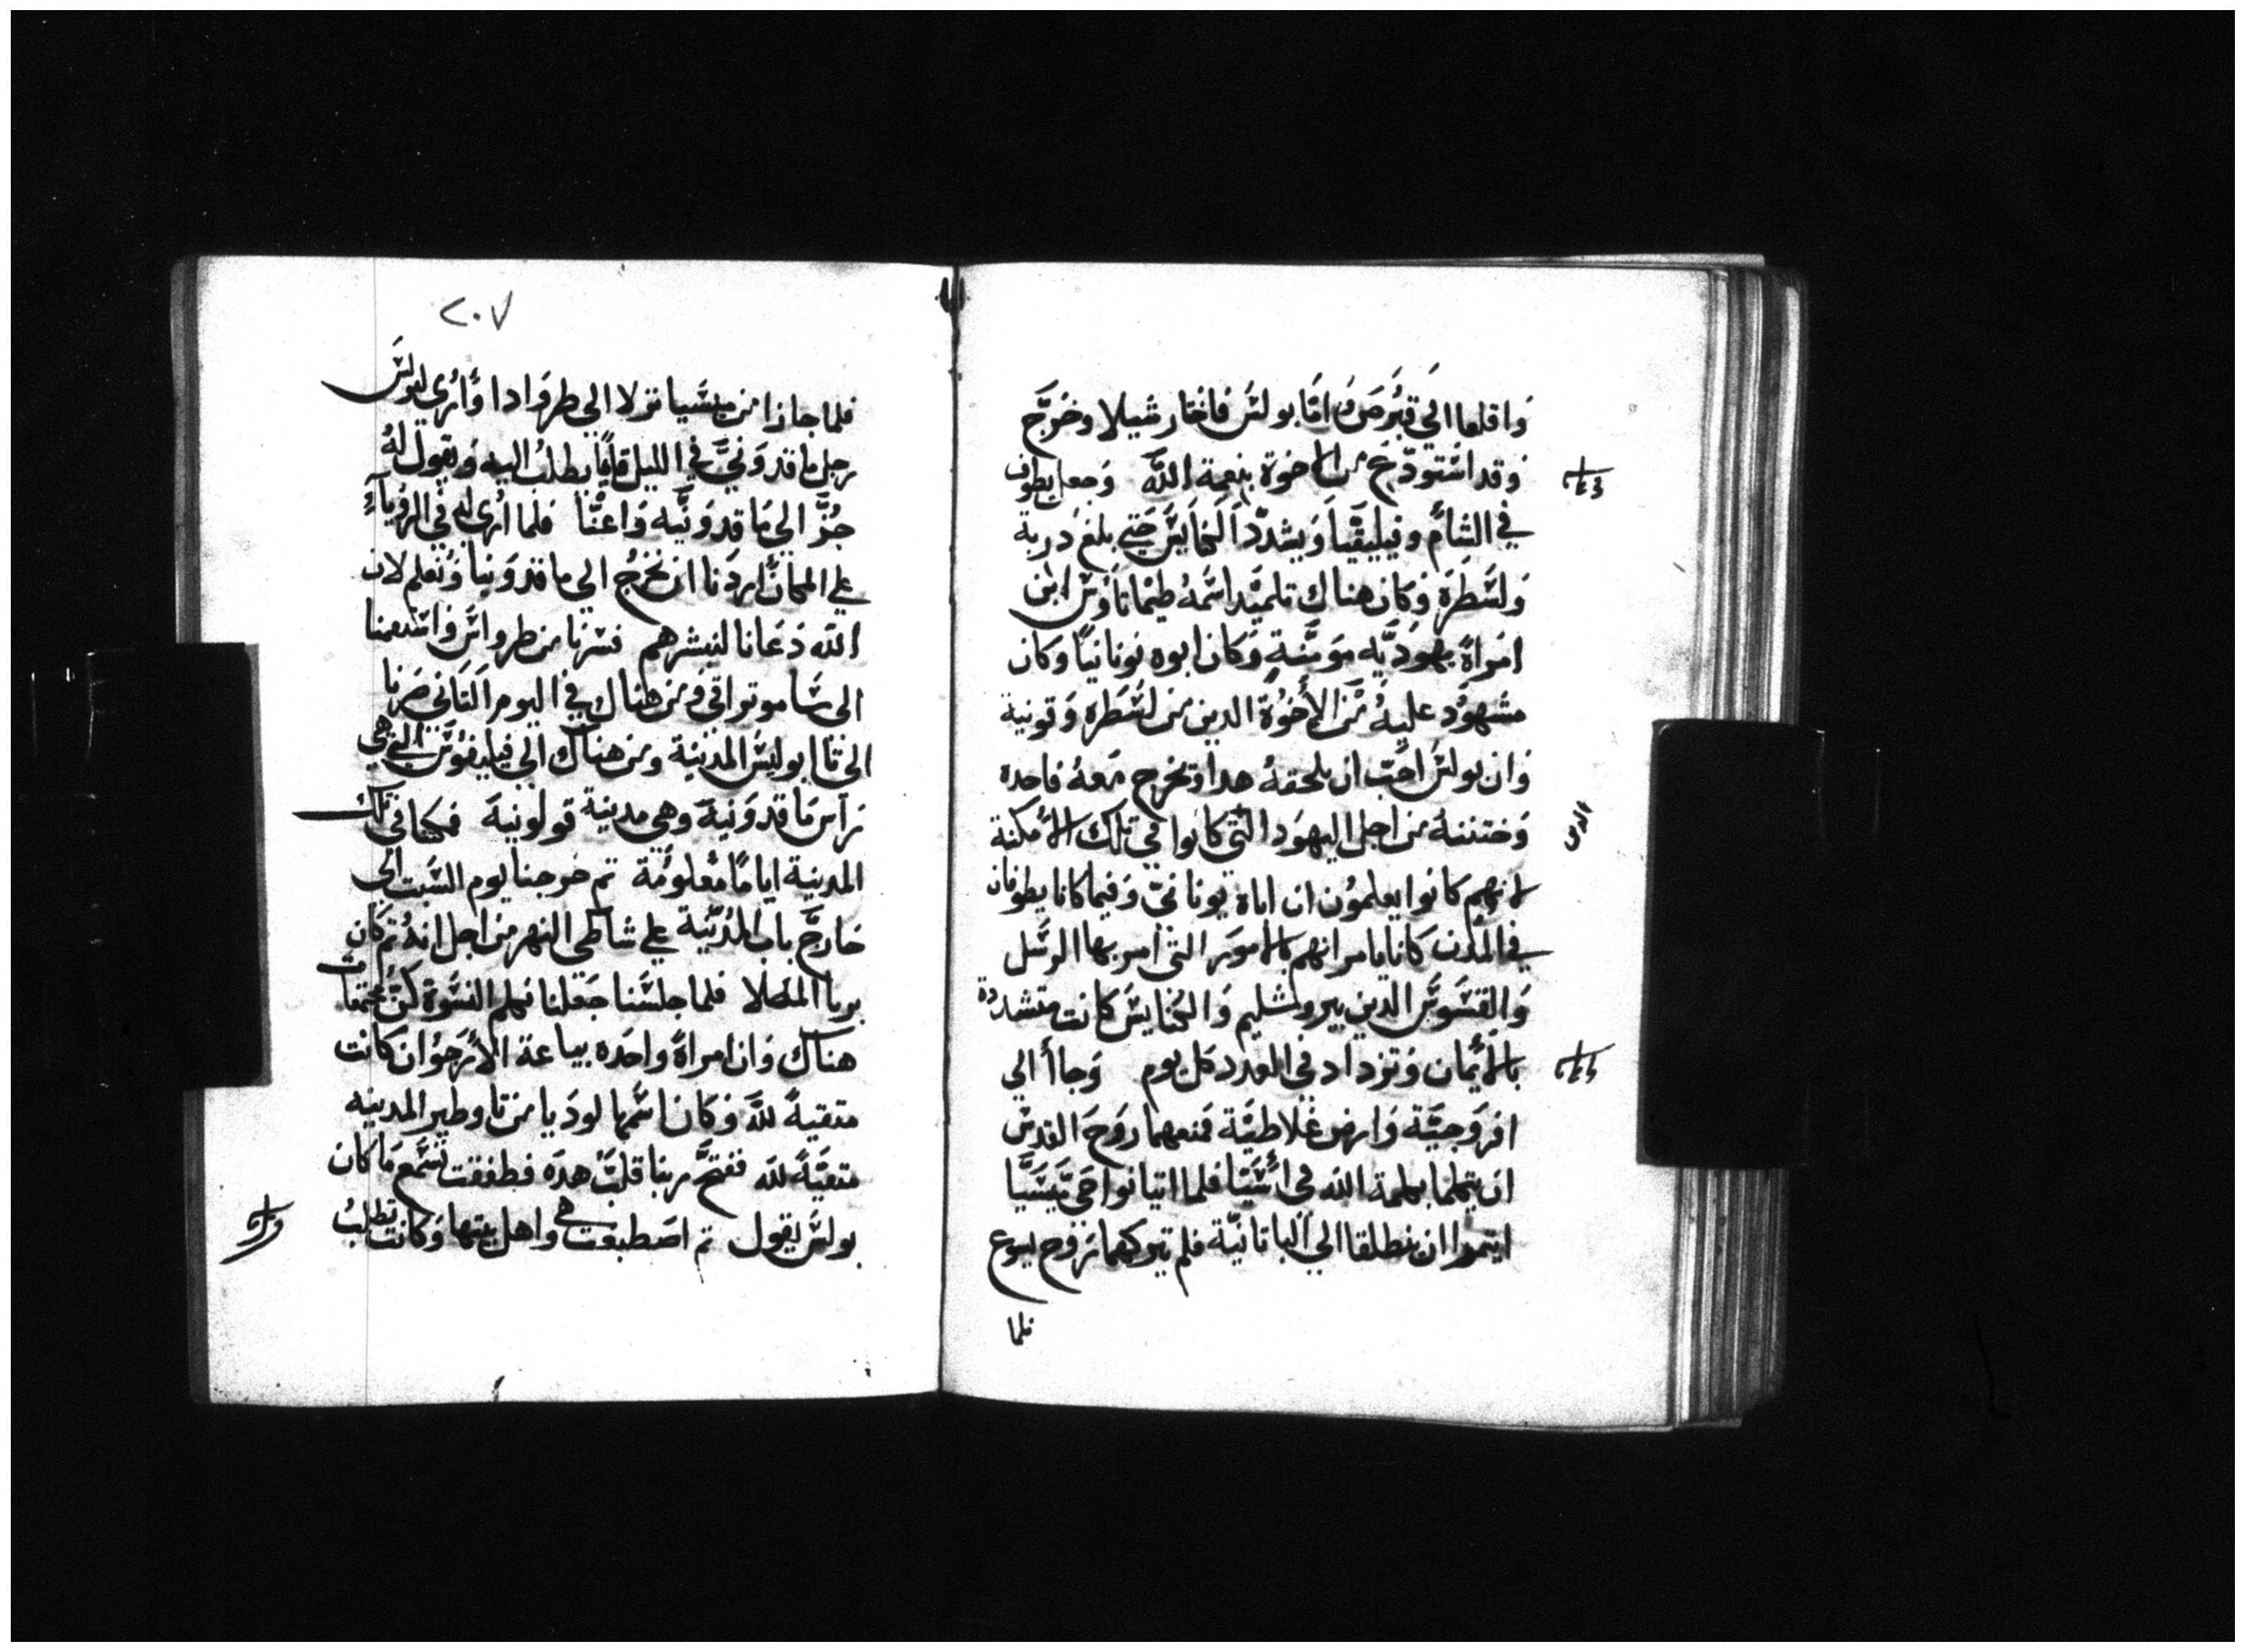 واقلعا الي قبرص واما بولس فاختار شيلا وخرج
وقد استودع من الاخوة بنعمة الله وجعل يطوف
في الشام وفيليقيا ويشدد الكنايس حتي بلغ دربة
ولسطرة وكان هناك تلميد اسمه طيماتاوس ابن
امراة يهوديه مومنة وكان ابوه يونانيا وكان
مشهود عليه من الاخوة الدين من لسطره وقونية
وان بولس احب ان يلحقه هدا وتخرج معه فاحده
وختننه من اجل اليهود التي كانوا في تلك الامكنة
الدين
لانهم كانوا يعلمون ان اباه يوناني وفيما كانا يطوفان
في المدن كانا يامرانهم بالامور التي امر بها الرسل
والقسوس الدين بيروشليم والكنايس كانت متشددة
بالايمان وتزداد في العدد كل يوم وجاا الي
افروجية وارض غلاطية فمنعهما روح القدس
ان يتكلما بكلمة الله في اسيا فلما اتيا نواحي تيسيا
ايتمرا ان ينطلقا الي الباتانية فلم تتركهما روح ليوع
فلما
٢٠٧
فلما جازا من ميسيا نزلا الي طروادا واري لبولس
رجل ماقدوني في الليل قايما يطلب اليه ويقول له
جز الي ماقدونيه واعنا فلما اري له في الروياء
علي المكان اردنا ان نخرج الي ماقدونيا ونعلم لان
الله دعانا لنبشرهم فسرنا من طرواس واستدمنا
الي ساموتراقي ومن هناك في اليوم التاني صرنا
الي ناابوليس المدينة ومن هناك الي فيليفوس التي هي
راس ماقدونية وهي مدينة قولونية فمكثنا في تلك
المدينة اياما معلومة تم خرجنا يوم السبت الي
خارج باب المدينة علي شاطي النهر من اجل انه تم كان
يريا المصلا فلما جلسنا جعلنا نكلم النسوة كن مجتمعات
هناك وان امراة واحده بياعة الارجوان كانت
متقية لله وكان اسمها لوديا من تاوطير المدينه
متقية لله ففتح ربنا قلب هده فطفقت تسمع ما كان
بولس يقول تم اصطبغت هي واهل بيتها وكانت تطلب